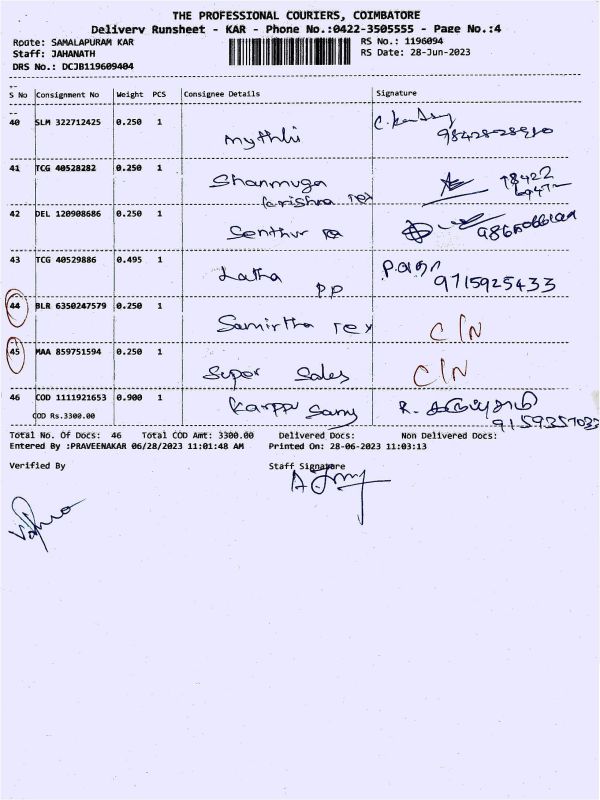 THE PROFESSIONAL COURIERS, COIMBATORE
Delivery Runsheet - KAR - Phone No.:0422-3505555 - Page No.:4
Route: SAMALAPURAM KAR RS No.: 1196094
Staff: JAHANATH RS Date: 28-Jun-2023
DRS No.: DCJB119609404
S No Consignment No Weight PCS Consignee Details Signature
40 SLM 322712425 0.250 1 Mythli
41 TCG 40528282 0.250 1 Shanmuga
krishna Tex
42 DEL 120908686 0.250 1 Senthur
43 TCG 40529886 0.495 1 Latha
P.P 9715925433
44 BLR 6350247579 0.250 1 Samirtha Tex C/N
45 MAA 859751594 0.250 1 Super Sales C/N
46 COD 1111921653 0.900 1 Karppu Samy R.
COD Rs.3300.00 9159357033
Total No. Of Docs: 46 Total COD Amt: 3300.00 Delivered Docs: Non Delivered Docs:
Entered By :PRAVEENAKAR 06/28/2023 11:01:48 AM Printed On: 28-06-2023 11:03:13
Verified By Staff Signature